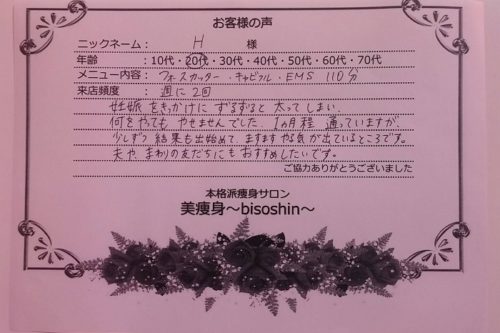 お客様の声
ニックネーム： H 様
年齢 ：10代・20代・30代・40代・50代・60代・70代
メニュー内容：フォースカッター・キャビフル・EMS 110分
来店頻度 ：週に2回
妊娠をきっかけにずるずると太ってしまい、
何をやってもやせませんでした。1ヵ月程通っていますが、
少しずつ結果も出始めて、ますますやる気が出ているところです。
夫や、まわりの友だちにもおすすめしたいです。
ご協力ありがとうございました
本格派痩身サロン
美痩身～bisoshin～